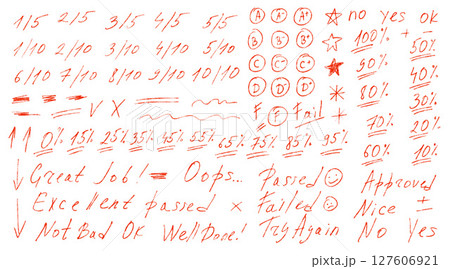 1/5 2/5 3/5 4/5 5/5 A A- A+ no yes ok
1/10 2/10 3/10 4/10 5/10 B B- B+ 100% + - 50%
6/10 7/10 8/10 9/10 10/10 C C- C+ 90% 40%
D D- D+ 80% 30%
V X F F Fail + 70% 20%
0% 15% 25% 35% 45% 55% 65% 75% 85% 95% 60% 10%
Great Job! Oops... Passed Approved
Excellent passed x Failed Nice ±
Not Bad OK Well Done! Try Again No Yes
PIXTA
pixta.jp - 127606921